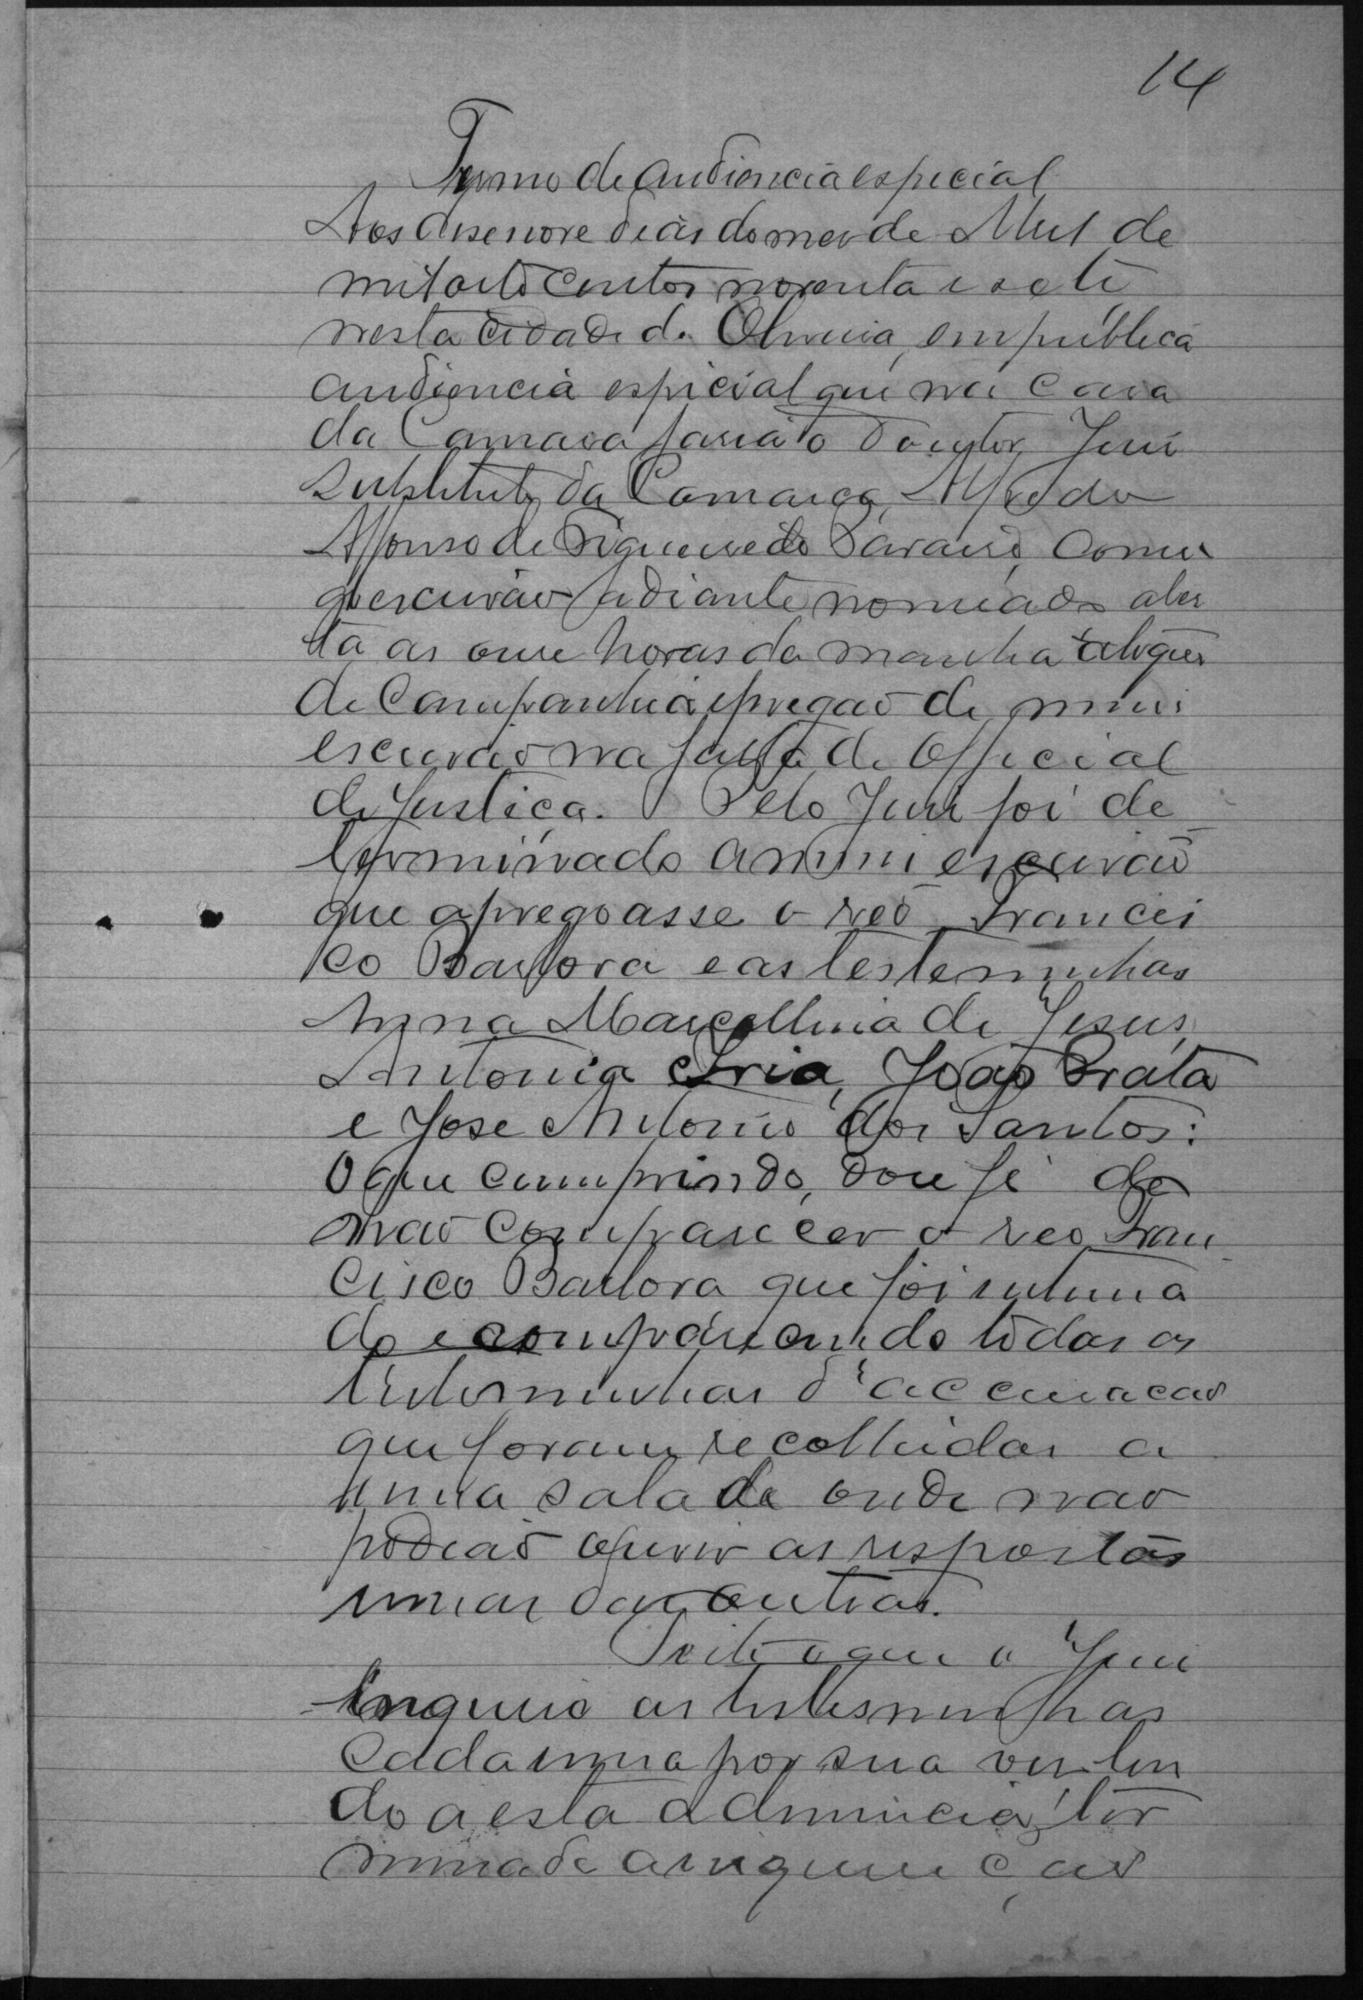 14
Termo de audiencia especial
Aos desenove dias do mez de de
mil oito centos noventa e sete
nesta cidade de Oliveira, em publica
audiencia especial que na casa
da Camara fasia o doutor Juis
substituto da Comarca, Alfredo
Affonso de Figueiredo Paraiso, comi
go escrivão adiante nomeado aber
ta as onse horas da manha a toque
de Campanhia e pregão de mim
escrivão na falta de Official
de Justiça. Pelo Juis foi de
terminado a mim escrivão
que apregoasse o reo Francis
co Barbora e as testeminhas
Anna Marcellina de Jesus,
Antonia Iria, João Prata
e Jose Antonio dos Santos:
O que cumprindo, dou fé de
não comparecer o reo Fran
cisco Barbora que foi intima
do e comparecendo todas as
testeminhas d'accusacão
que foram recolhidas a
uma sala de onde não
podião ouvir as respostas
umas das outras.
Feito o que o Juis
inquirio as testeminhas
cada uma por sua vez len
do a esta a denuncia, ter
minada a inquirição